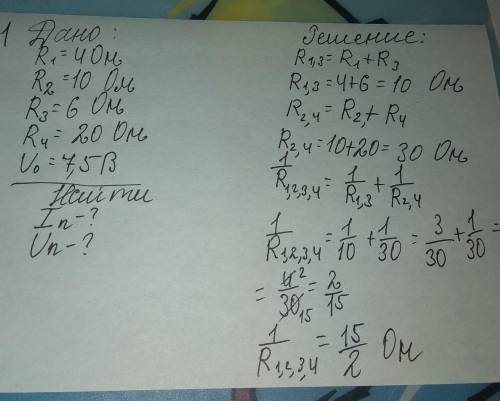 1 Дано:
R₁ = 4 Ом
R₂ = 10 Ом
R₃ = 6 Ом
R₄ = 20 Ом
U₀ = 7,5 В
Найти
Iп - ?
Uп - ?
Решение:
R₁,₃ = R₁ + R₃
R₁,₃ = 4+6 = 10 Ом
R₂,₄ = R₂ + R₄
R₂,₄ = 10+20 = 30 Ом
1/R₁,₂,₃,₄ = 1/R₁,₃ + 1/R₂,₄
1/R₁,₂,₃,₄ = 1/10 + 1/30 = 3/30 + 1/30 =
= 4 2/30 15 = 2/15
1/R₁,₂,₃,₄ = 15/2 Ом